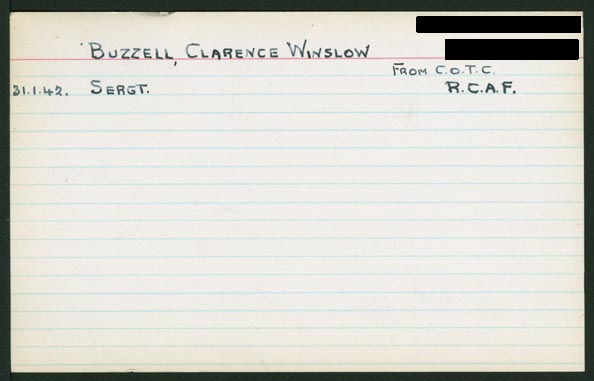 BUZZELL, CLARENCE WINSLOW
FROM C.O.T.C.
31.1.42. SERGT. R.C.A.F.